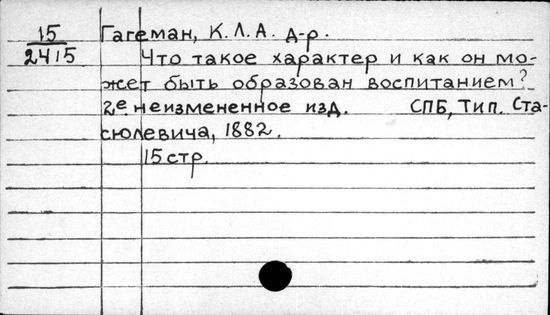 15 Гагеман, К.Л.А. д-р.
2415 Что такое характер и как он мо-
жет быть образован воспитанием?
2е неизмененное изд. СПБ, Тип. Ста-
сюлевича, 1882.
15 стр.